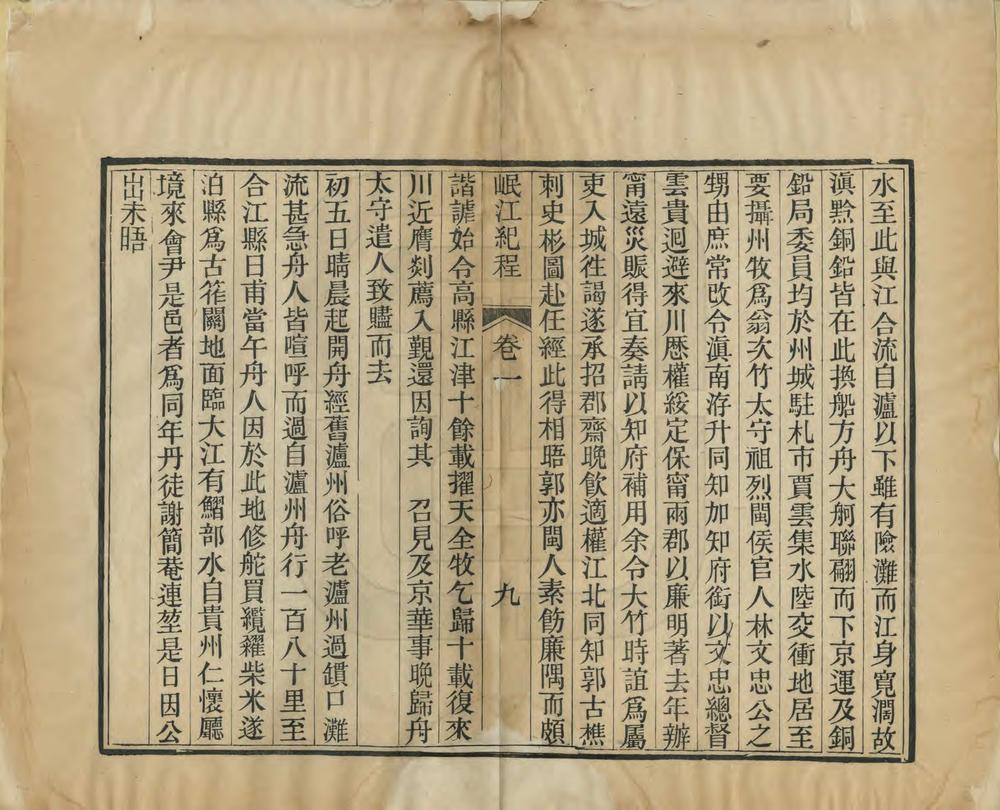 水至此與江合流自瀘以下雖有險灘而江身寬濶故
滇黔銅鉛皆在此換船方舟大舸聯翩而下京運及銅
鉛局委員均於州城駐札市賈雲集水陸交衝地居至
要攝州牧爲翁次竹太守祖烈閩侯官人林文忠公之
甥由庶常改令滇南洊升同知加知府銜以文忠總督
雲貴迴避來川厯權綏定保甯兩郡以廉明著去年辦
甯遠災賑得宜奏請以知府補用余令大竹時誼爲屬
吏入城徃謁遂承招郡齋晚飲適權江北同知郭古樵
刺史彬圖赴任經此得相晤郭亦閩人素飭廉隅而頗
岷江紀程 卷一 九
諧謔始令高縣江津十餘載擢天全牧乞歸十載復來
川近膺剡薦入覲還因詢其 召見及京華事晚歸舟
太守遣人致贐而去
初五日晴晨起開舟經舊瀘州俗呼老瀘州過鑽口灘
流甚急舟人皆喧呼而過自瀘州舟行一百八十里至
合江縣日甫當午舟人因於此地修舵買纜糴柴米遂
泊縣爲古苻關地面臨大江有鰼部水自貴州仁懷廳
境來會尹是邑者爲同年丹徒謝簡菴連堃是日因公
出未晤